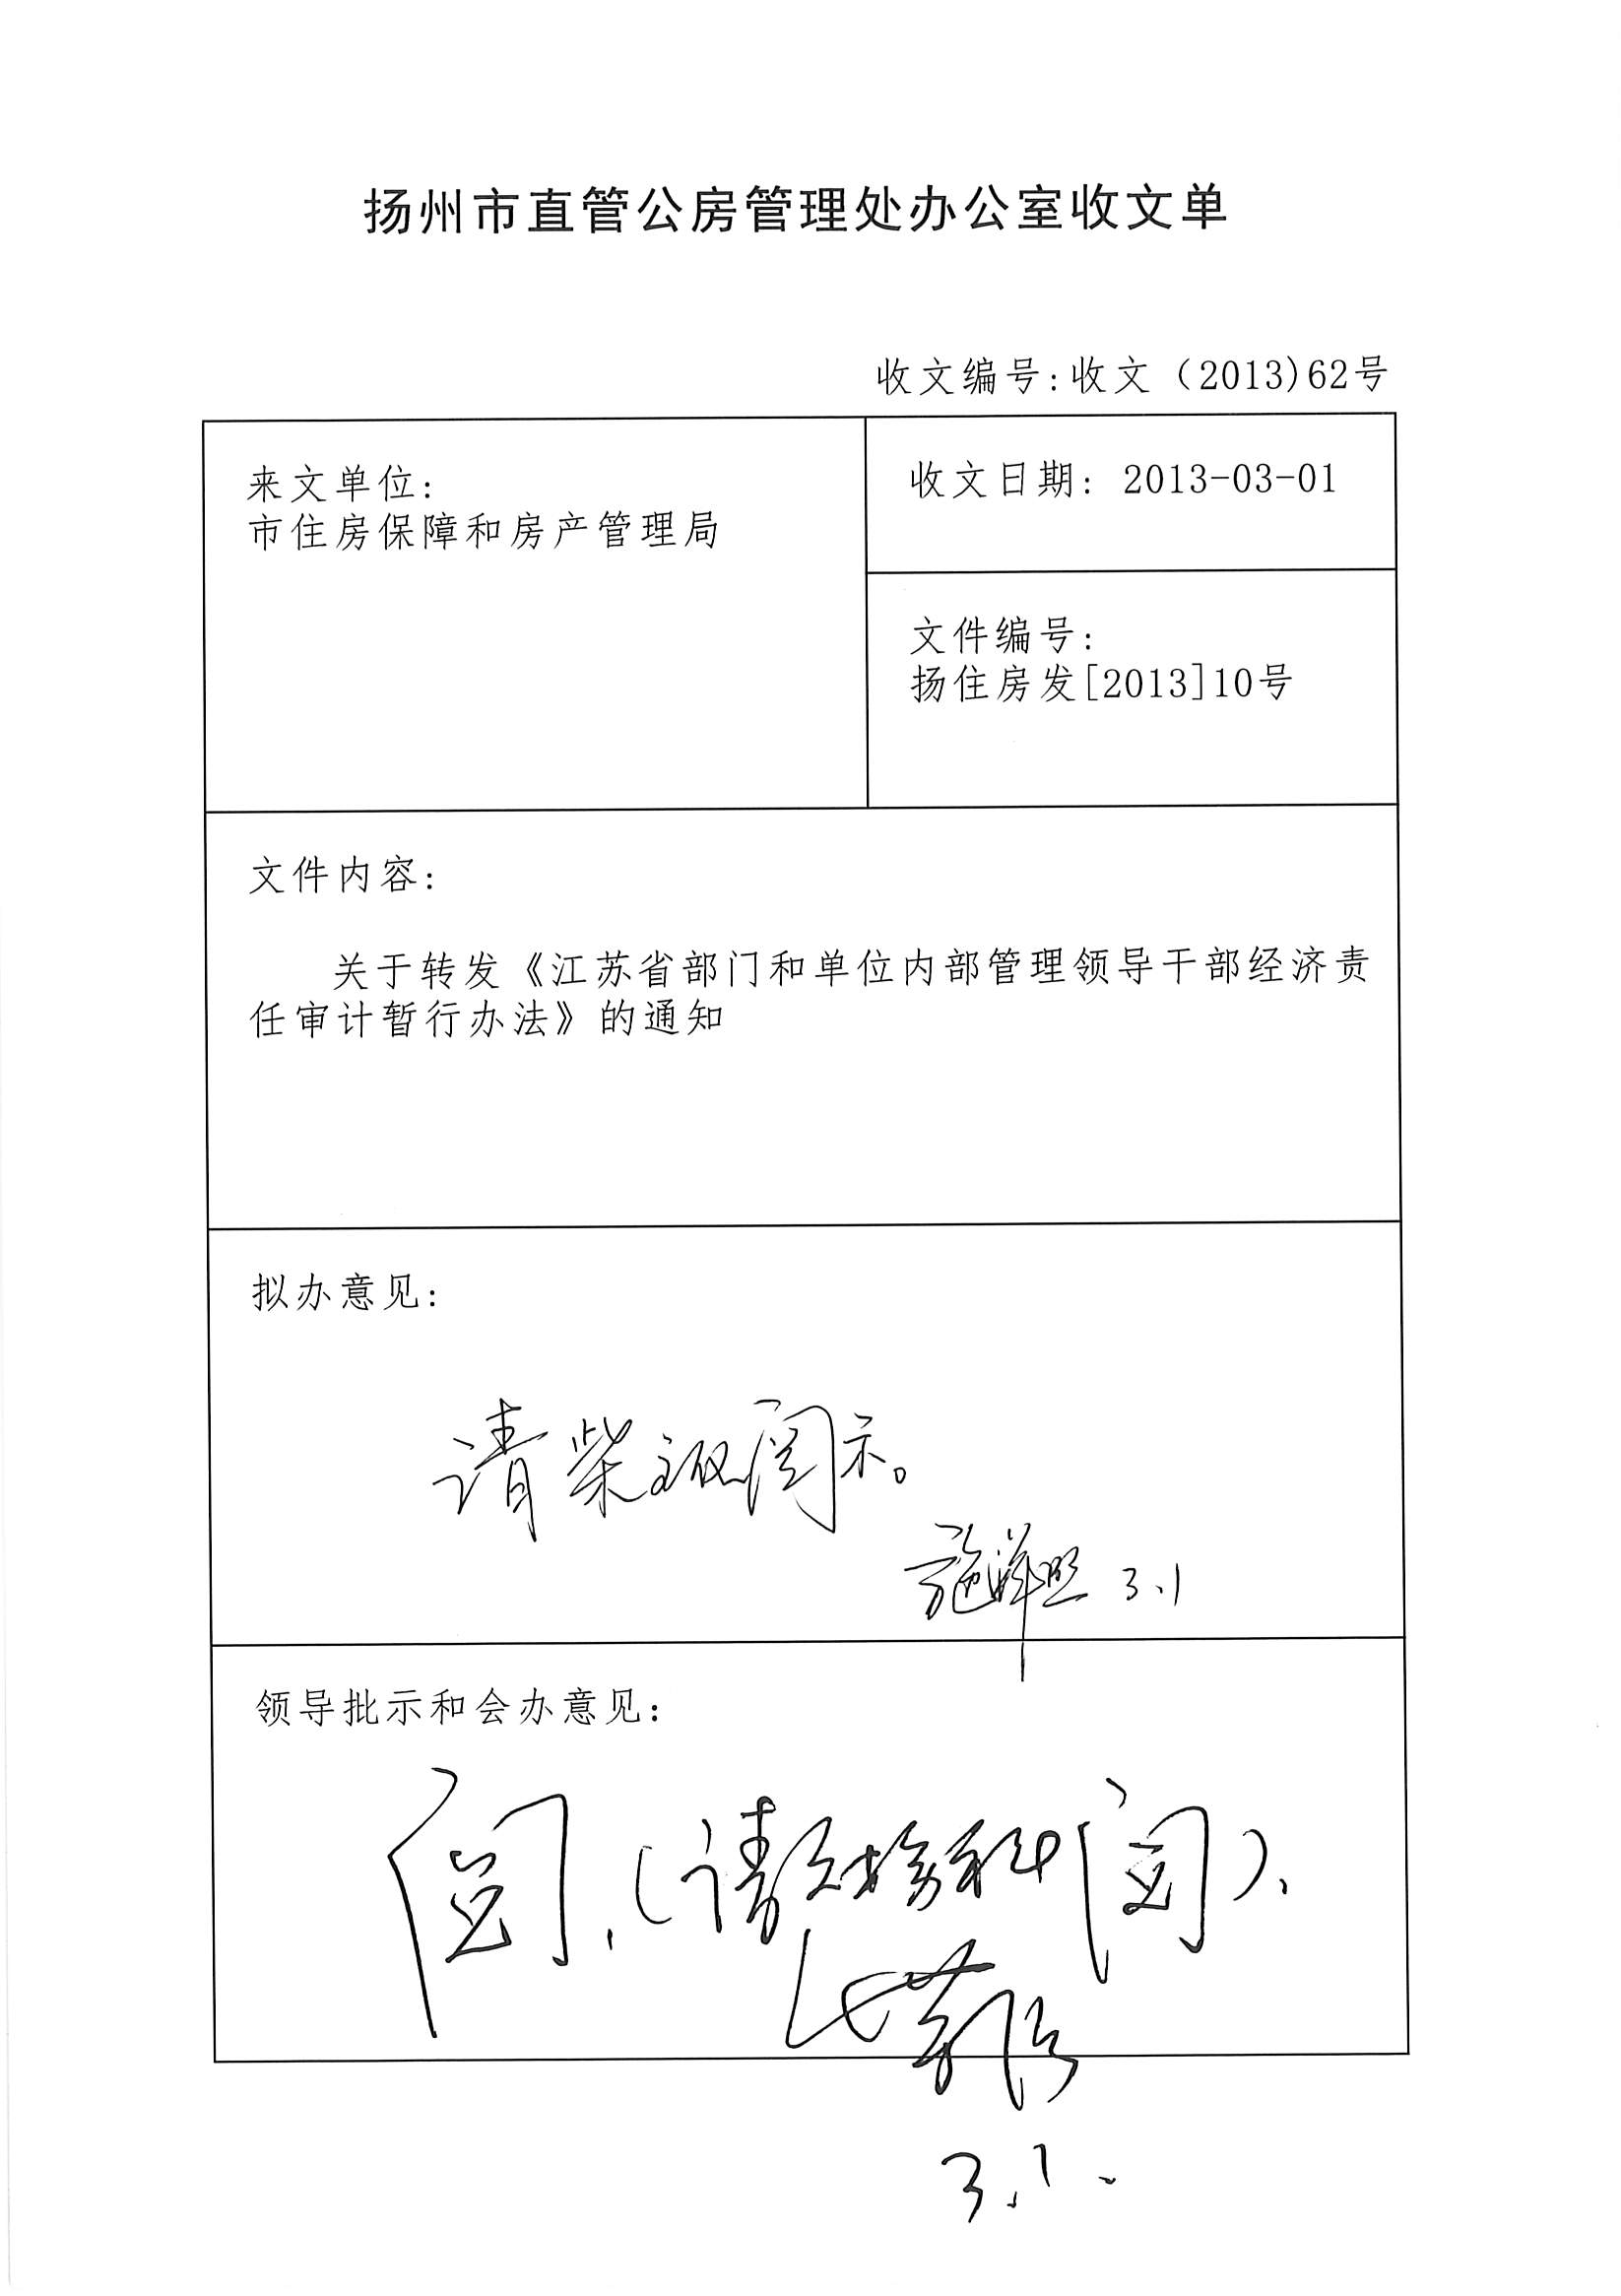 扬州市直管公房管理处办公室收文单
收文编号:收文（2013)62号
来文单位:
市住房保障和房产管理局
收文日期: 2013-03-01
文件编号:
扬住房发[2013]10号
文件内容:
关于转发《江苏省部门和单位内部管理领导干部经济责
任审计暂行办法》的通知
拟办意见:
请柴主任阅示。
施 3.1
领导批示和会办意见:
阅.(请财务科阅).
3.1.